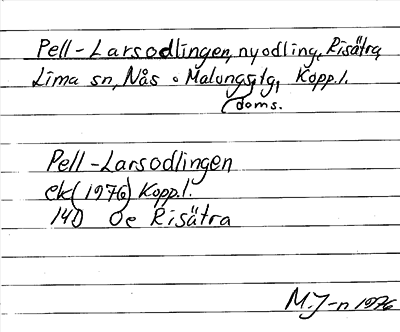 Pell-Larsodlingen, nyodling, Risätra,
Lima sn, Nås o Malungs tg, Kopp.l.
doms.
Pell-Larsodlingen
ek (1976) Kopp.l.
14D Oe Risätra
M.J-n 1976